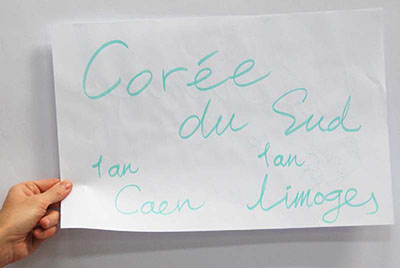 Corée
du Sud
1an 1an
Caen Limoges